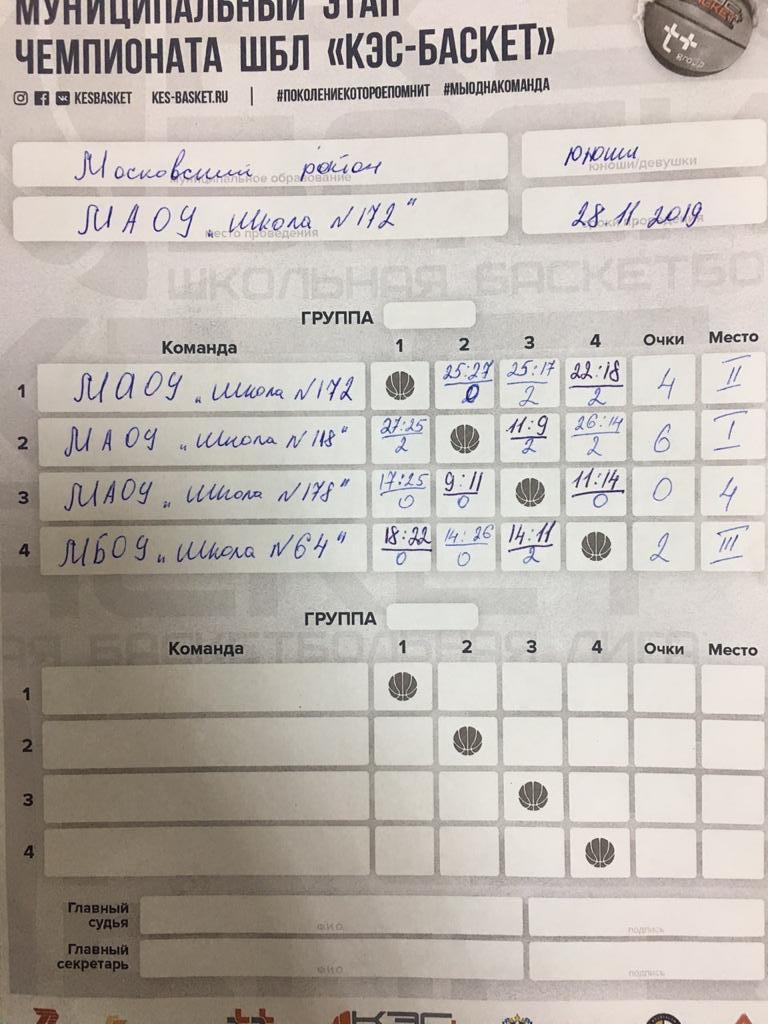 МУНИЦИПАЛЬНЫЙ ЭТАП
ЧЕМПИОНАТА ШБЛ «КЭС-БАСКЕТ»
KESBASKET KES-BASKET.RU | #ПОКОЛЕНИЕКОТОРОЕПОМНИТ #МЫОДНАКОМАНДА
t+
group
Московский район
муниципальное образование
юноши
юноши/девушки
МАОУ „Школа N172"
место проведения
28.11.2019
сроки проведения
ШКОЛЬНАЯ БАСКЕТБО
ГРУППА
Команда 1 2 3 4 Очки Место
1 МАОУ „Школа N172 25:27 25:17 22:18 4 II
0 2 2
2 МАОУ „Школа N118" 27:25 11:9 26:14 6 I
2 2 2
3 МАОУ „Школа N178" 17:25 9:11 11:14 0 4
0 0 0
4 МБОУ „Школа N64" 18:22 14:26 14:11 2 III
0 0 2
ГРУППА
Команда 1 2 3 4 Очки Место
1
2
3
4
Главный
судья
Ф.И.О.
подпись
Главный
секретарь
Ф.И.О.
подпись
КЭС